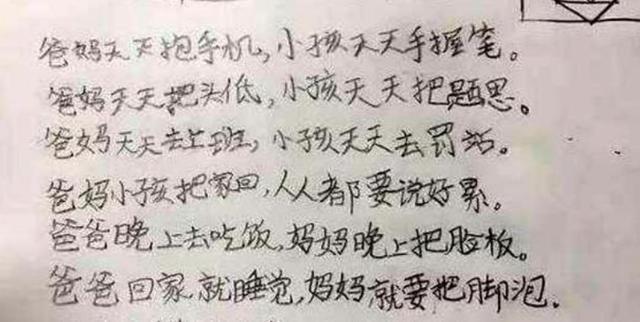 爸妈天天抱手机,小孩天天手握笔。
爸妈天天把头低,小孩天天把题思。
爸妈天天去上班,小孩天天去罚站。
爸妈小孩把家回,人人都要说好累。
爸爸晚上去吃饭,妈妈晚上把脸板。
爸爸回家就睡觉,妈妈就要把脚泡.